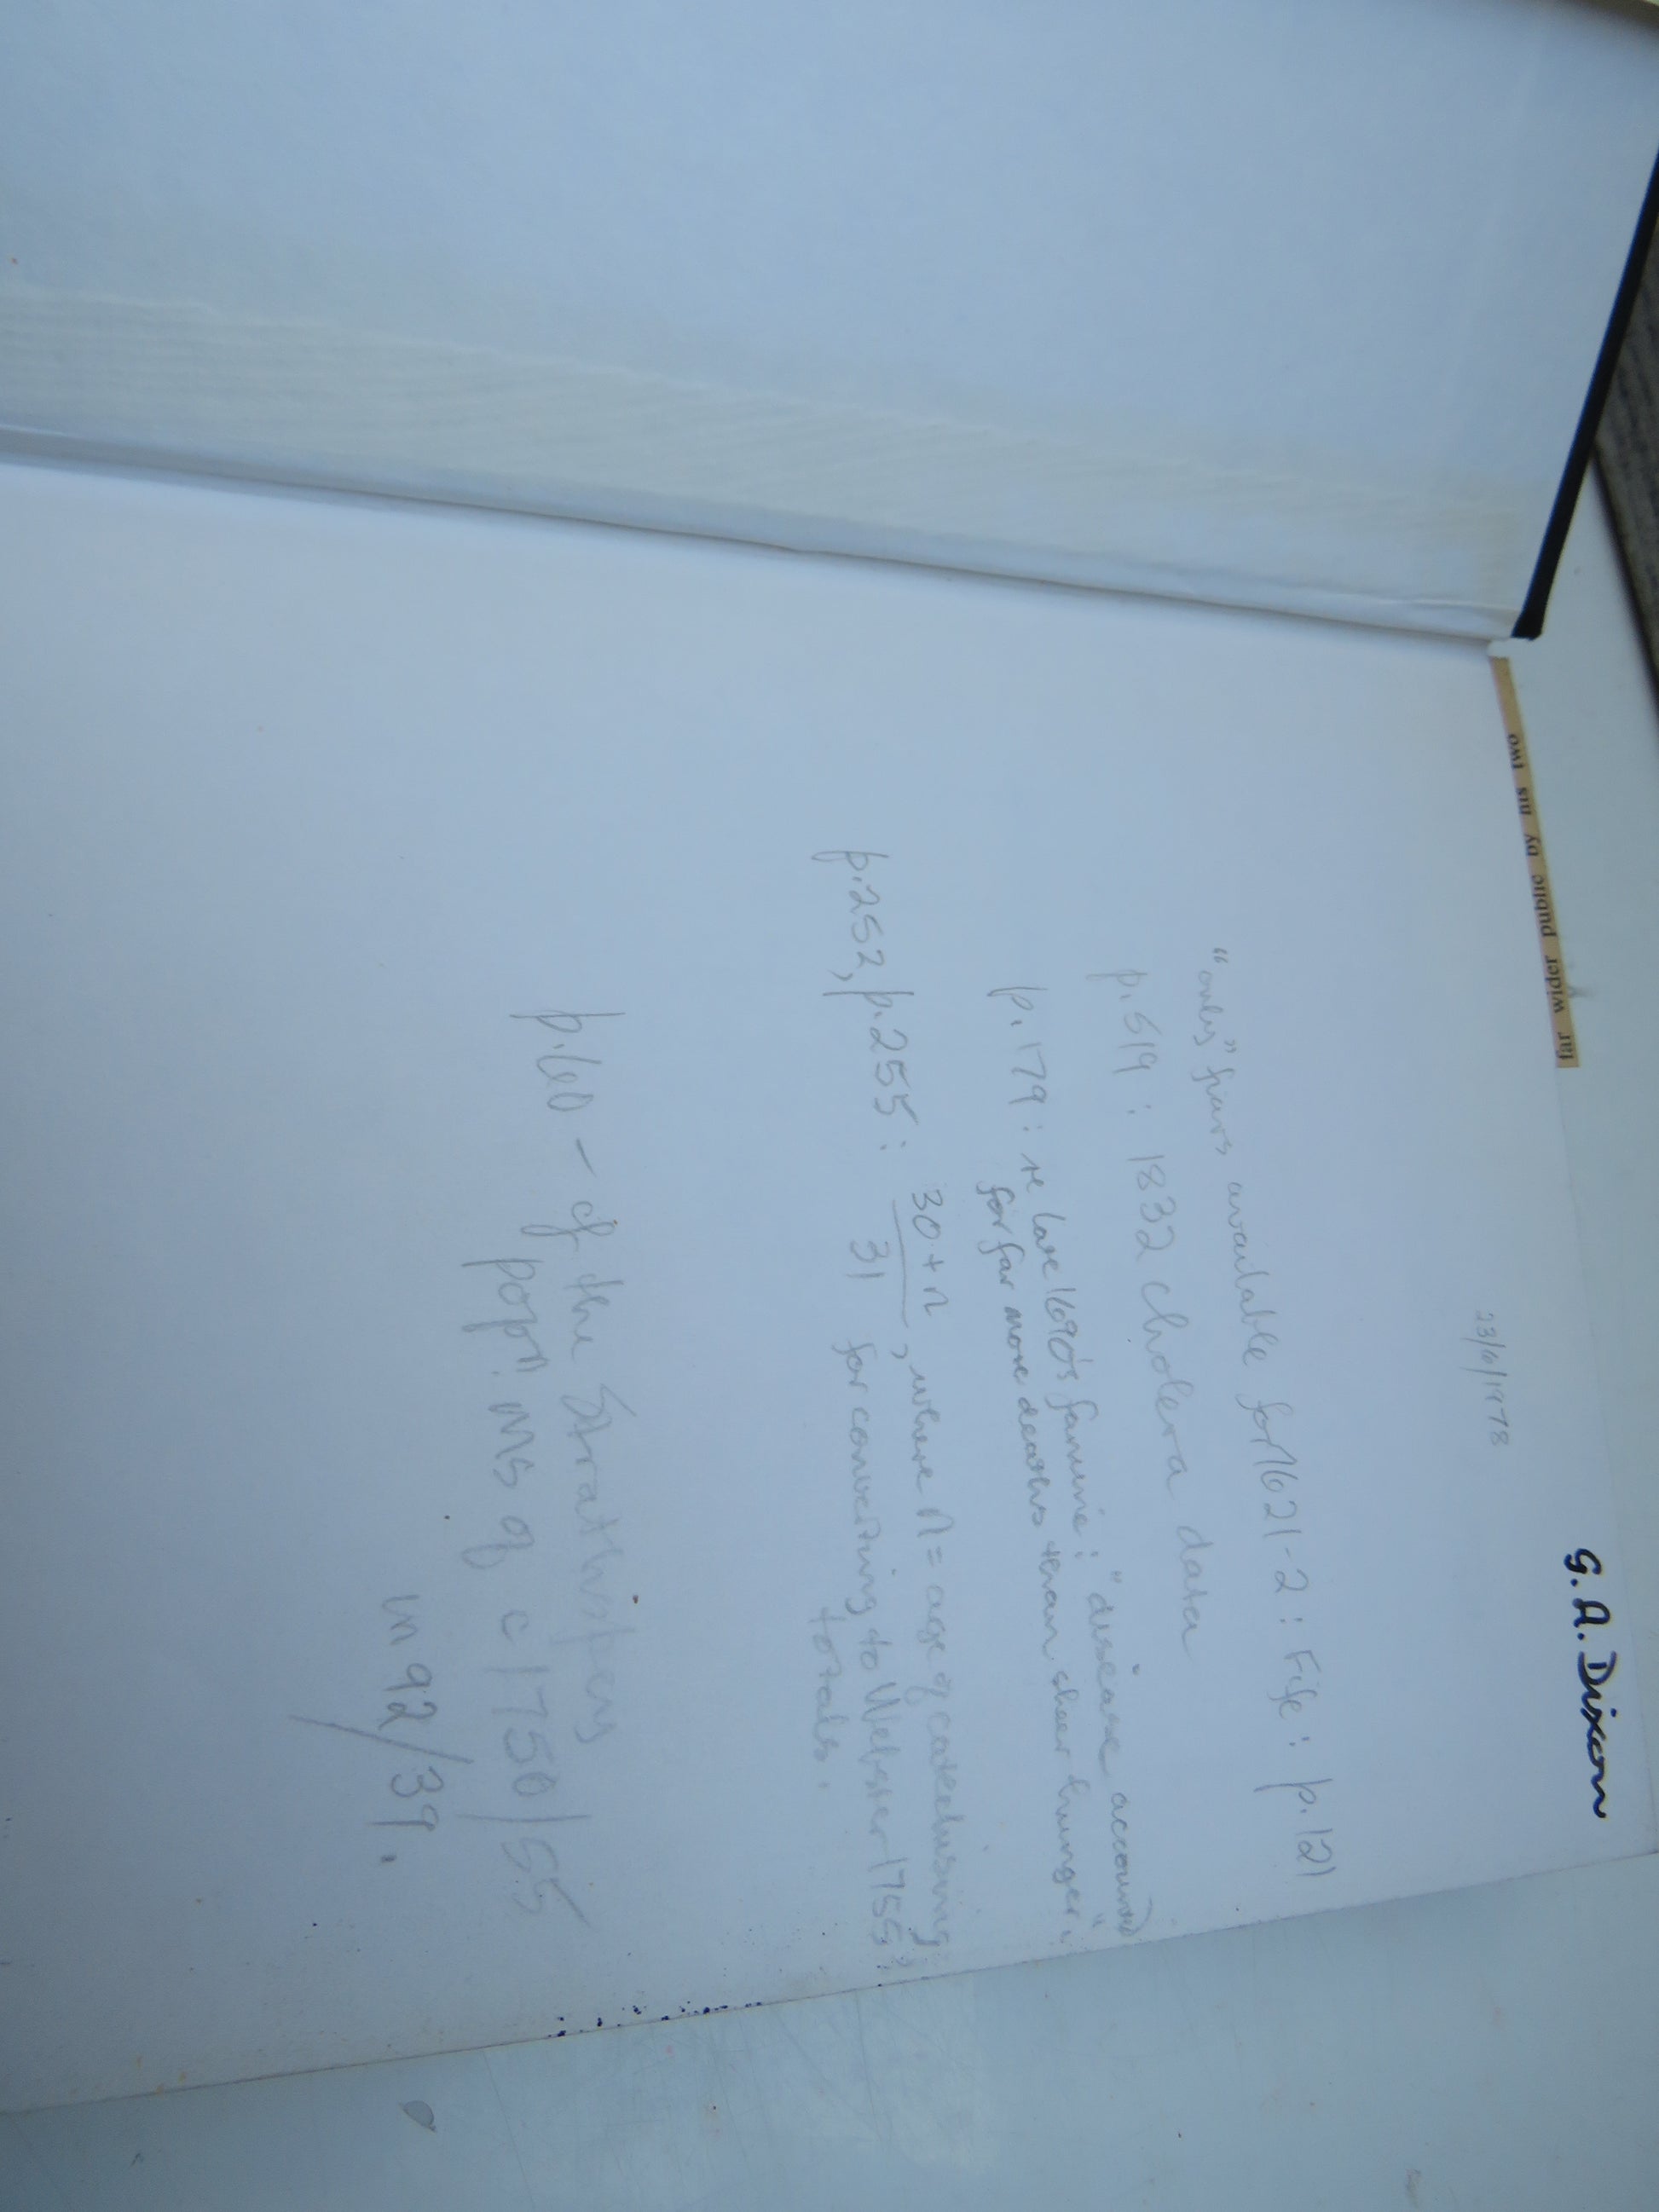 far wider public by his two
G. A. Dixon
23/6/1978
"only" figures available for 1621-2 : Fife : p. 121
p. 519 : 1832 cholera data
p. 179 : re late 1690's famine : "disease accounted
for far more deaths than sheer hunger".
p. 252, p. 255 : 30 + n , where n = age of catechising
31 for converting to Webster 1755
totals.
p. 60 – cf the
popn. MS of c 1750/55
in 92/39.